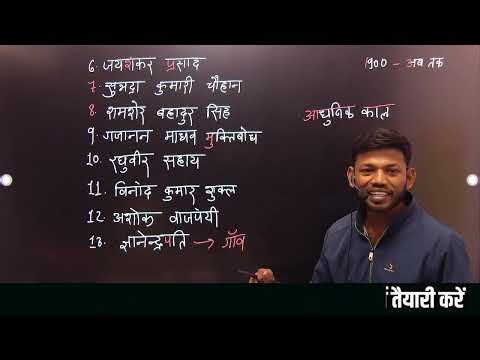 6. जयशंकर प्रसाद
7. सुभद्रा कुमारी चौहान
8. शमशेर बहादुर सिंह
9. गजानन माधव मुक्तिबोध
10. रघुवीर सहाय
11. विनोद कुमार शुक्ल
12. अशोक वाजपेयी
13. ज्ञानेन्द्रपति → गाँव
1900 - अब तक
आधुनिक काल
तैयारी करें